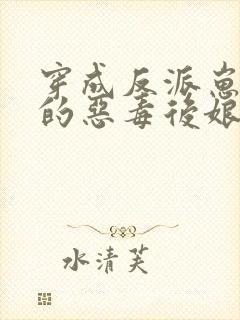 穿成反派崽
的惡毒後娘
水清芙